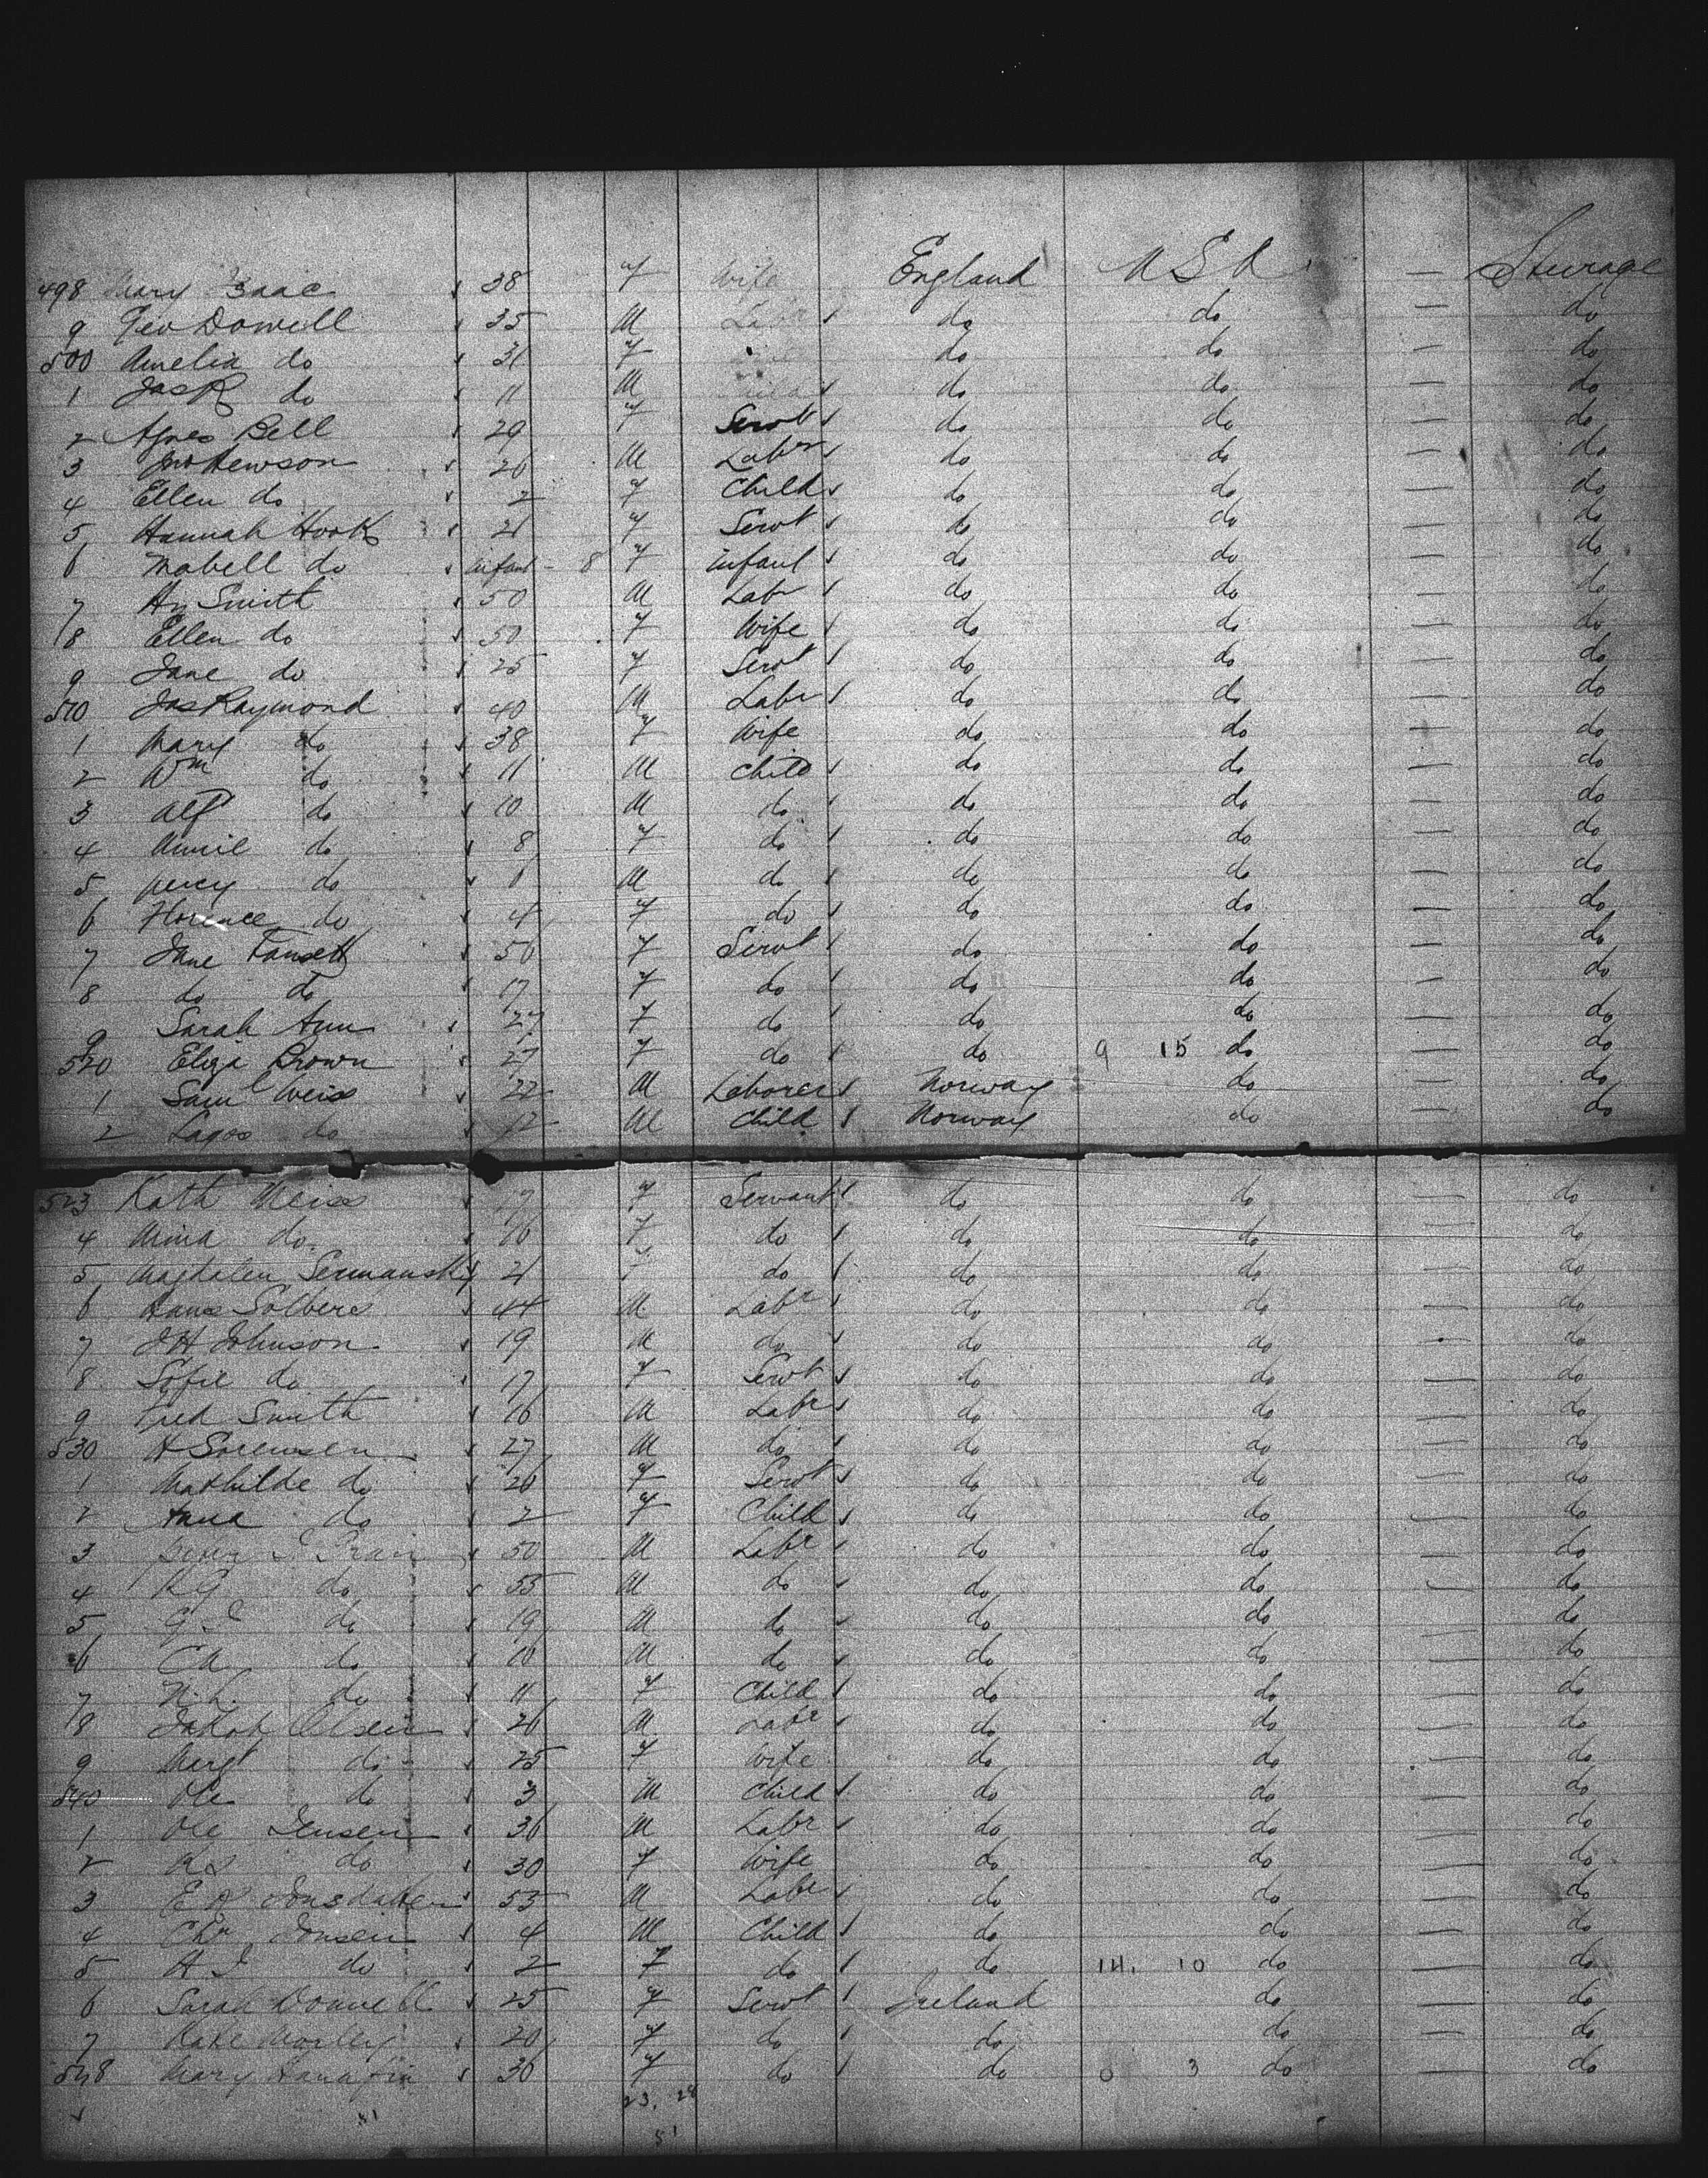 498 Mary Isaac 38 f Wife England U S A — Steerage
9 Geo Dowell 35 M Labr do do — do
500 Amelia do 31 f do do — do
1 Jas R do 11 M Child do do — do
2 Agnes Bell 29 f Servt do do — do
3 Jno Hewson 26 M Labr do do — do
4 Ellen do 2 f Child do do — do
5 Hannah Hook 21 f Servt do do — do
6 Mabell do infant - 8 f infant do do — do
7 Hy Smith 50 M Labr do do — do
8 Ellen do 50 f Wife do do — do
9 Jane do 25 f Servt do do — do
510 Jas Raymond 40 M Labr do do — do
1 Mary do 38 f Wife do do — do
2 Wm do 11 M Child do do — do
3 Alf do 10 M do do do — do
4 Annie do 8 f do do do — do
5 percy do 6 M do do do — do
6 Florence do 4 f do do do — do
7 Jane 50 f Servt do do — do
8 do do 17 f do do do — do
9 Sarah Ann 27 f do do do — do
520 Eliza Brown 27 f do do 9 15 do — do
1 Saml Weiss 22 M Laborer Norway do — do
2 Lagos do 12 M Child Norway do — do
523 Kath Weiss 17 f Servant do do — do
4 Mina do 16 f do do do — do
5 Magdalen Sermansky 21 f do do do — do
6 Hans Solberg 44 M Labr do do — do
7 J H Johnson 19 M do do do — do
8 Sofie do 17 f Servt do do — do
9 Fred Smith 16 M Labr do do — do
530 H Sorensen 27 M do do do — do
1 Mathilde do 26 f Servt do do — do
2 Anna do 2 f Child do do — do
3 50 M Labr do do — do
4 K G do 55 M do do do — do
5 G I do 19 M do do do — do
6 C A do 10 M do do do — do
7 N. L. do 11 f Child do do — do
8 Jakob Olsen 26 M Labr do do — do
9 Margt do 25 f Wife do do — do
540 Ole do 3 M Child do do — do
1 Ole Jensen 36 M Labr do do — do
2 do 30 f Wife do do — do
3 E 55 M Labr do do — do
4 Chr Jonsen 4 M Child do do — do
5 H I do 2 f do do 14. 10 do — do
6 Sarah Donnell 25 f Servt Ireland do — do
7 Kate Morley 20 f do do do — do
548 Mary Hanafin 30 f do do 0 3 do — do
23. 28
51